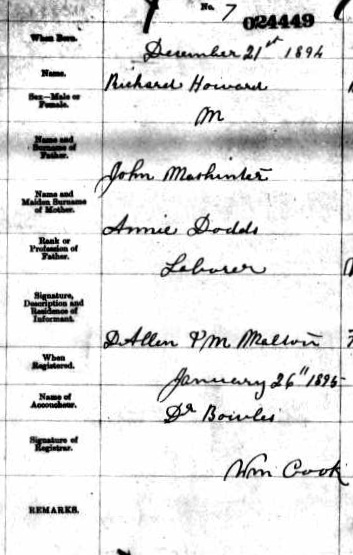 No. 7
024449
When Born.
December 21st 1894
Name.
Richard Howard
Sex—Male or
Female.
M
Name and
Surname of
Father.
John Mashinter
Name and
Maiden Surname
of Mother.
Annie Dodds
Rank or
Profession of
Father.
Laborer
Signature,
Description and
Residence of
Informant.
D Allen P M Malton
When
Registered.
January 26" 1895
Name of
Accoucheur.
Dr Bowles
Signature of
Registrar.
Wm Cook
REMARKS.